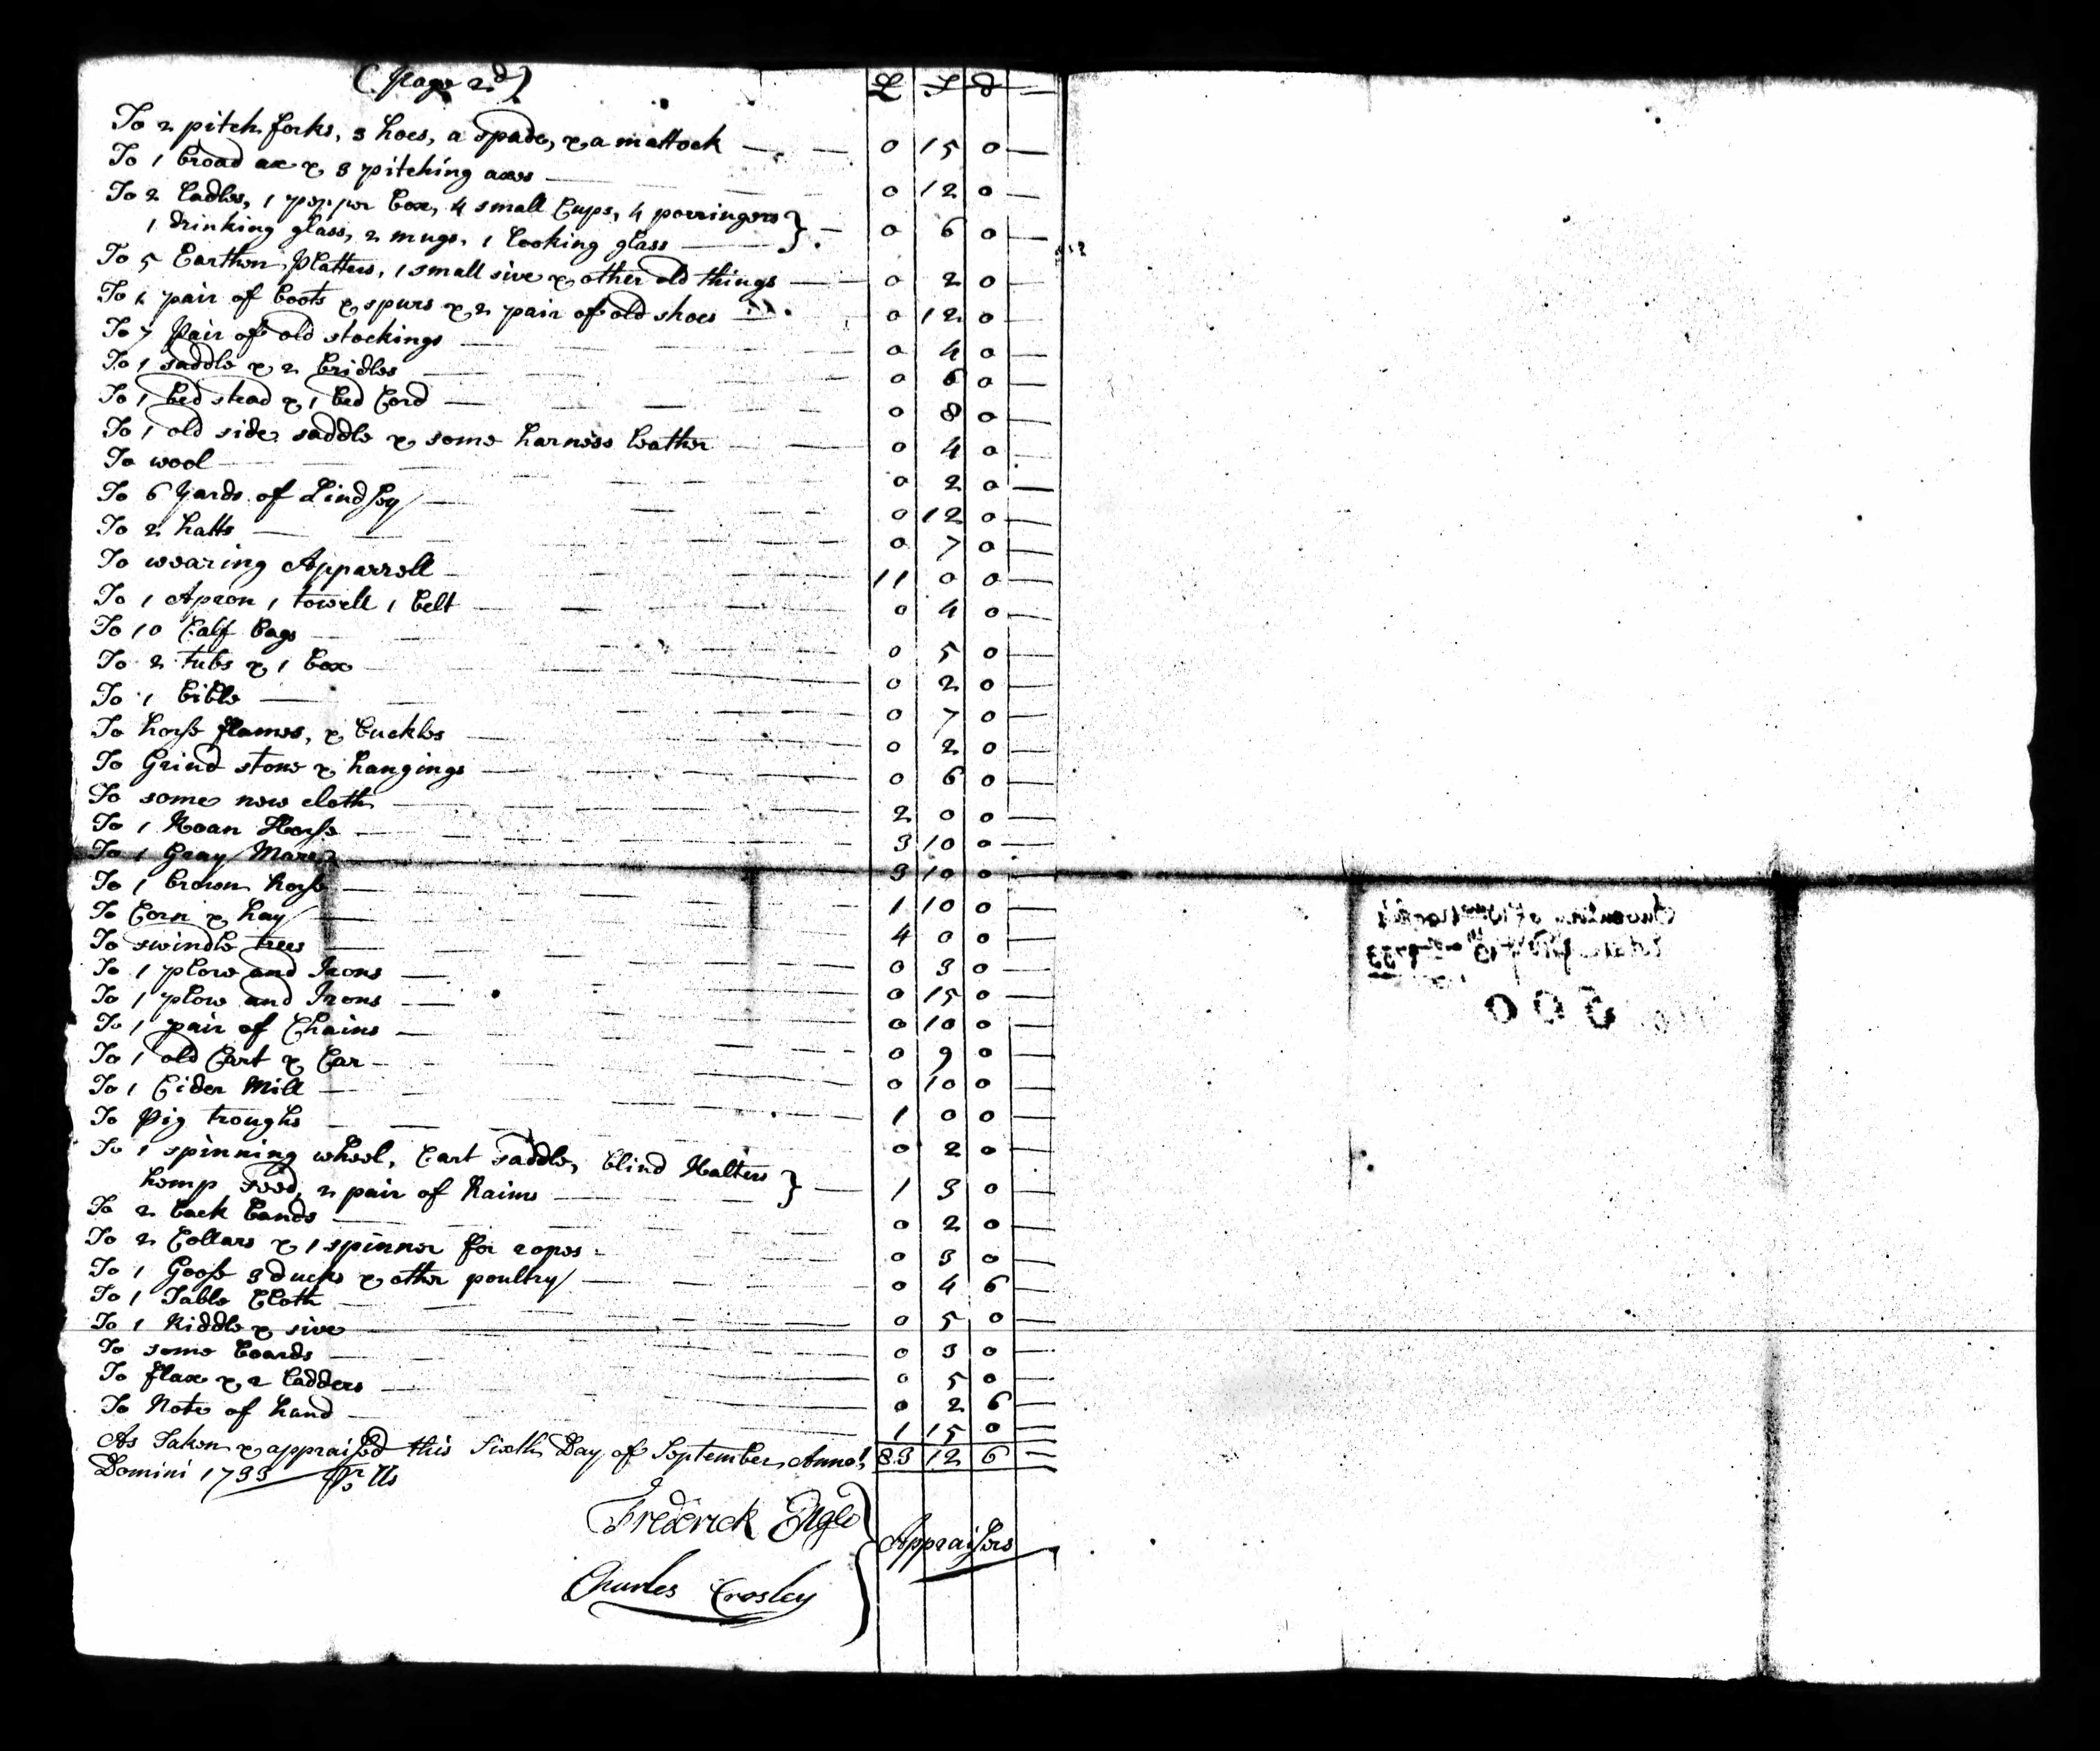 (Page 2d)
£ S d
To 2 pitch forks, 3 hoes, a spade, & a mattock 0 15 0
To 1 broad ax & 3 pitching axes 0 12 0
To 2 Ladles, 1 pepper box, 4 small Cups, 4 porringers
1 drinking glass, 2 mugs, 1 looking glass 0 6 0
To 5 Earthen Platters, 1 small sive & other old things 0 2 0
To 1 pair of boots & spurs & 2 pair of old shoes 0 12 0
To 7 Pair of old stockings 0 4 0
To 1 saddle & 2 bridles 0 6 0
To 1 bed stead & 1 bed Cord 0 8 0
To 1 old side saddle & some harness leather 0 4 0
To wool 0 2 0
To 6 Yards of Lindsey 0 12 0
To 2 hatts 0 7 0
To wearing Apparrell 11 0 0
To 1 Apron 1 towell 1 belt 0 4 0
To 10 Calf bags 0 5 0
To 2 tubs & 1 box 0 2 0
To 1 bible 0 7 0
To horse flames, & buckles 0 2 0
To Grind stone & hangings 0 6 0
To some new cloth 2 0 0
To 1 Roan Horse 3 10 0
To 1 Gray Mare 3 10 0
To 1 brown horse 1 10 0
To Corn & hay 4 0 0
To swindle trees 0 3 0
To 1 plow and Irons 0 15 0
To 1 plow and Irons 0 10 0
To 1 pair of Chains 0 9 0
To 1 old Cart & Car 0 10 0
To 1 Cider Mill 1 0 0
To Pig troughs 0 2 0
To 1 spinning wheel, Cart saddle, blind Halters
hemp seed, 2 pair of Rains 1 3 0
To 2 back bands 0 2 0
To 2 Collars & 1 spinner for ropes 0 3 0
To 1 Goose 3 ducks & other poultry 0 4 6
To 1 Table Cloth 0 5 0
To 1 Riddle & sive 0 3 0
To some boards 0 5 0
To flax & 2 ladders 0 2 6
To Note of hand 1 15 0
As Taken & appraised this Sixth Day of September Anno 83 12 6
Domini 1733 Pr Us
Frederick Engle
Appraisers
Charles Crosley